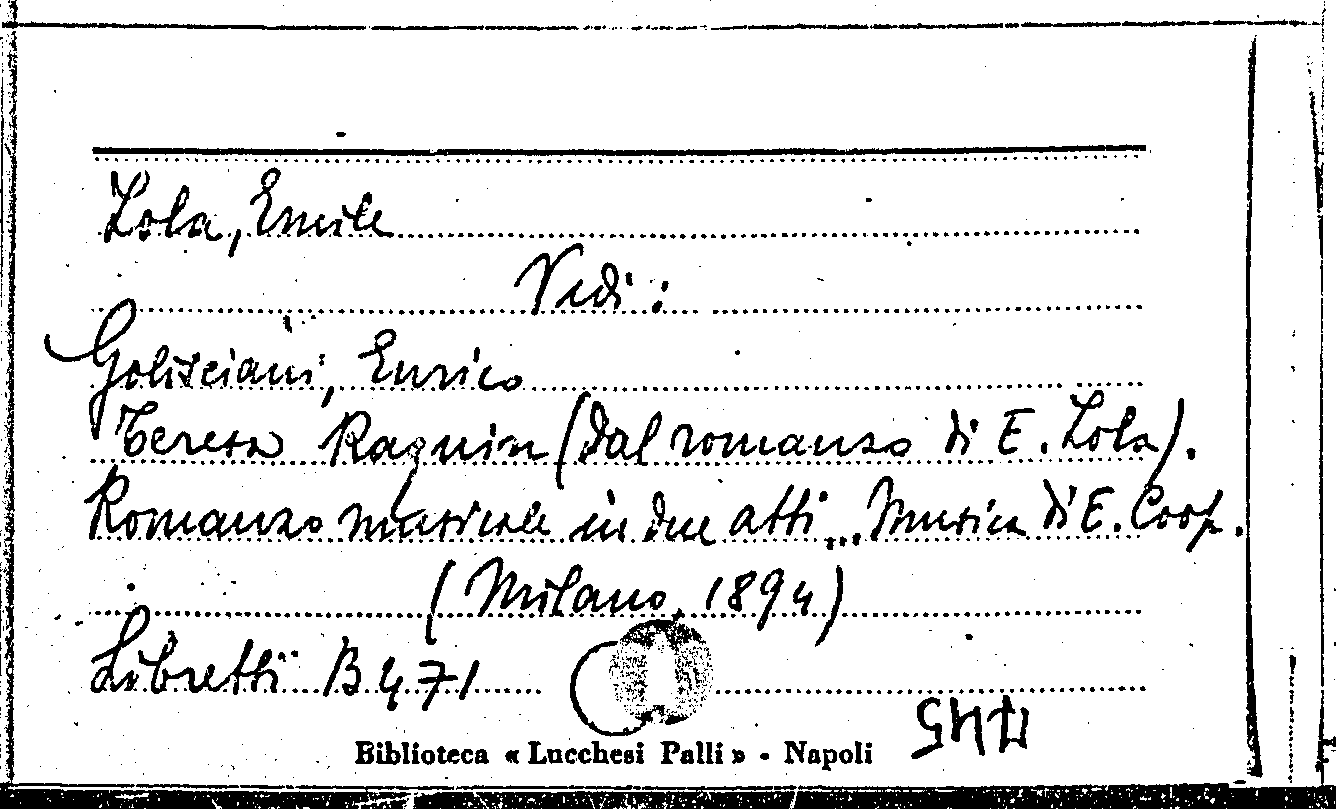 Zola, Emile
Vedi :
Golisciani, Enrico
Teresa Raquin (dal romanzo di E. Zola).
Romanzo musicale in due atti... Musica di E. Coop.
(Milano, 1894)
Libretti B 471
Biblioteca « Lucchesi Palli » - Napoli